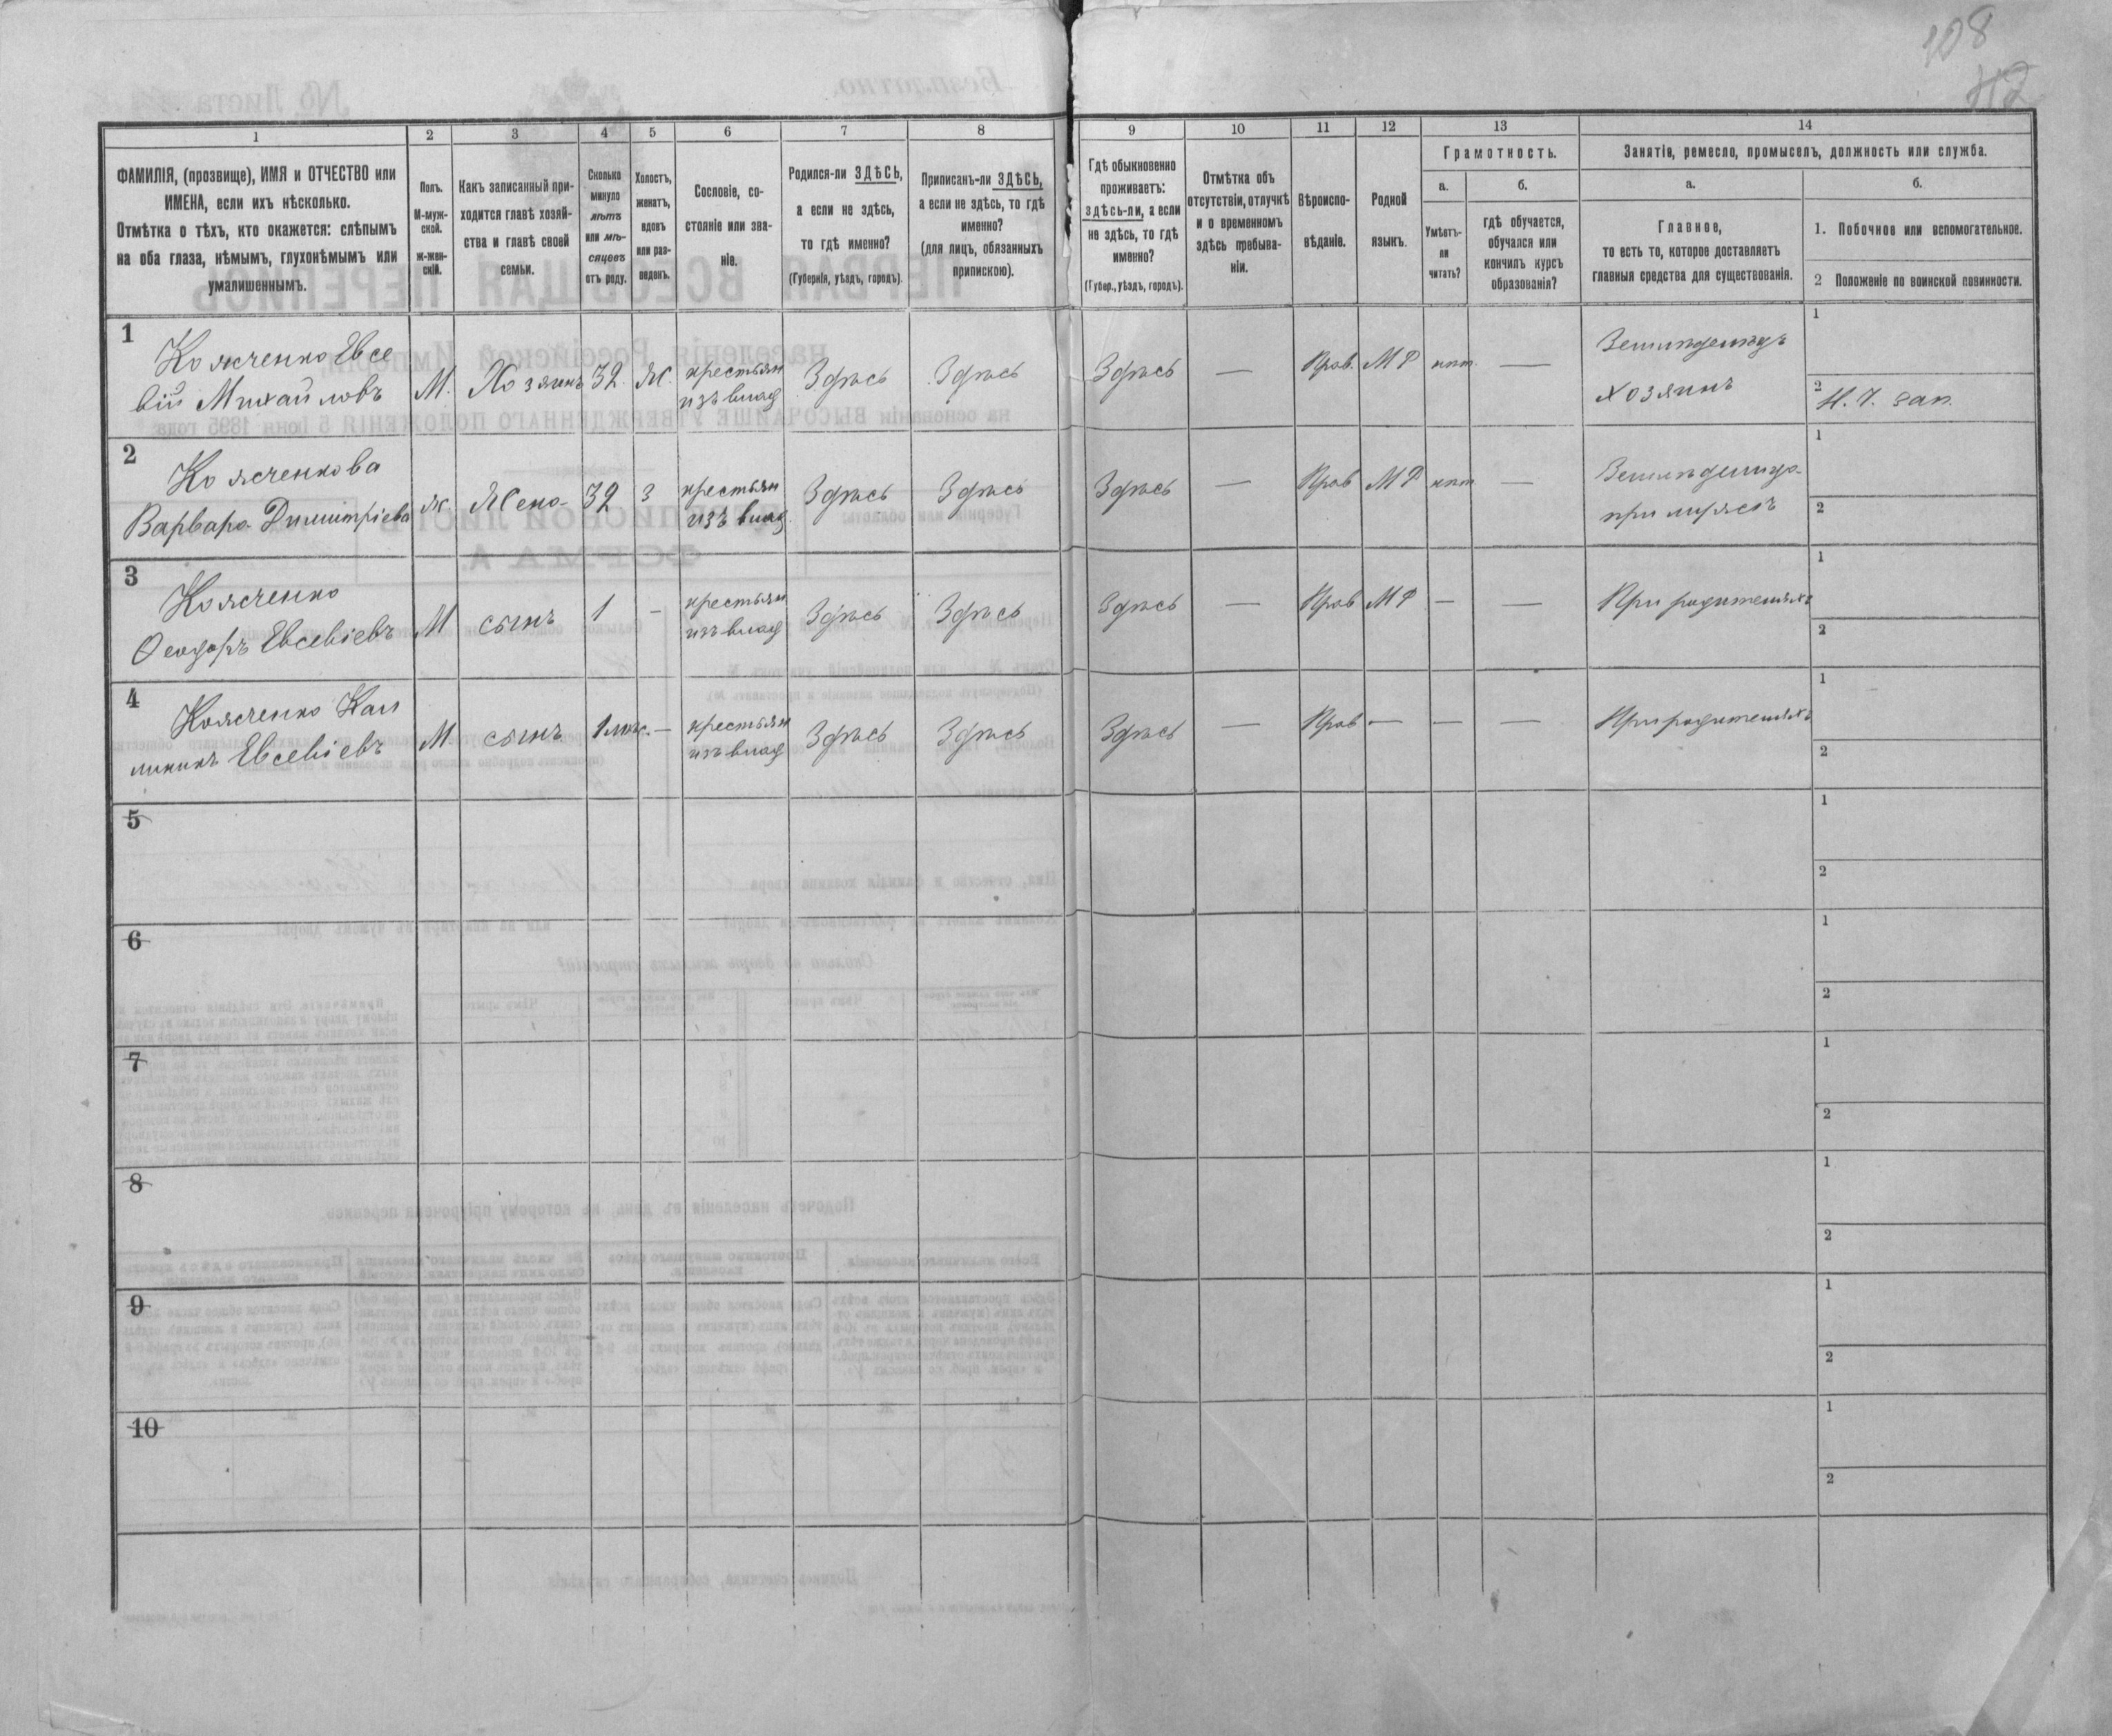 108
112
1 2 3 4 5 6 7 8 9 10 11 12 13 14
ФАМИЛІЯ, (прозвище), ИМЯ и ОТЧЕСТВО или
ИМЕНА, если ихъ нѣсколько.
Отмѣтка о тѣхъ, кто окажется: слѣпымъ
на оба глаза, нѣмымъ, глухонѣмымъ или
умалишеннымъ.
Полъ.
М-муж-
ской.
Ж-жен-
скій.
Какъ записанный при-
ходится главѣ хозяй-
ства и главѣ своей
семьи.
Сколько
минуло
лѣтъ
или мѣ-
сяцевъ
отъ роду.
Холостъ,
женатъ,
вдовъ
или раз-
веденъ.
Сословіе, со-
стояніе или зва-
ніе.
Родился-ли ЗДѢСЬ,
а если не здѣсь,
то гдѣ именно?
(Губернія, уѣздъ, городъ).
Приписанъ-ли ЗДѢСЬ,
а если не здѣсь, то гдѣ
именно?
(для лицъ, обязанныхъ
припискою).
Гдѣ обыкновенно
проживаетъ:
здѣсь-ли, а если
не здѣсь, то гдѣ
именно?
(Губер., уѣздъ, городъ).
Отмѣтка объ
отсутствіи, отлучкѣ
и о временномъ
здѣсь пребыва-
ніи.
Вѣроиспо-
вѣданіе.
Родной
языкъ.
Грамотность.
а.
Умѣетъ-
ли
читать?
б.
гдѣ обучается,
обучался или
кончилъ курсъ
образованія?
Занятіе, ремесло, промыселъ, должность или служба.
а.
Главное,
то есть то, которое доставляетъ
главныя средства для существованія.
б.
1. Побочное или вспомогательное.
2 Положеніе по воинской повинности.
1
Коясченко Евсе
вій Михайловъ
М. Хозяинъ 32. Ж. крестьян
изъ влад Здѣсь Здѣсь Здѣсь — Прав. МР нѣт — Земледѣлецъ
хозяинъ
1
2 Н. Ч. зап.
2
Коясченкова
Варвара Димитріева
ж. Жена 32 З крестьян
изъ влад. Здѣсь Здѣсь Здѣсь — Прав МР нѣт —
при мужѣ
1
2
3
Коясченко
Ѳеодоръ Евсевіевъ
М сынъ 1 — крестьян
изъ влад Здѣсь Здѣсь Здѣсь — Прав МР — — При родителяхъ
1
2
4
Коясченко Кал
линикъ Евсевіевъ
М сынъ 1 мѣс. — крестьян
изъ влад Здѣсь Здѣсь Здѣсь — Прав — — — При родителяхъ
1
2
5
1
2
6
1
2
7
1
2
8
1
2
9
1
2
10
1
2